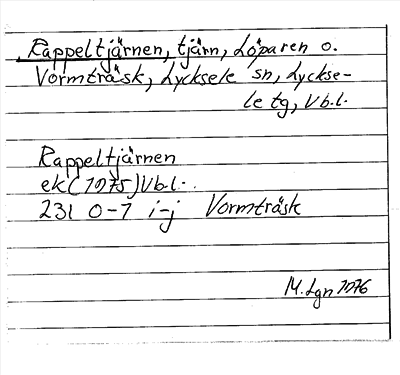 Rappeltjärnen, tjärn, Löparen o.
Vormträsk, Lycksele sn, Lyckse-
le tg, Vb.l.
Rappeltjärnen
ek(1975)Vb.l.
23I 0-1 i-j Vormträsk
M. Lgn 1976